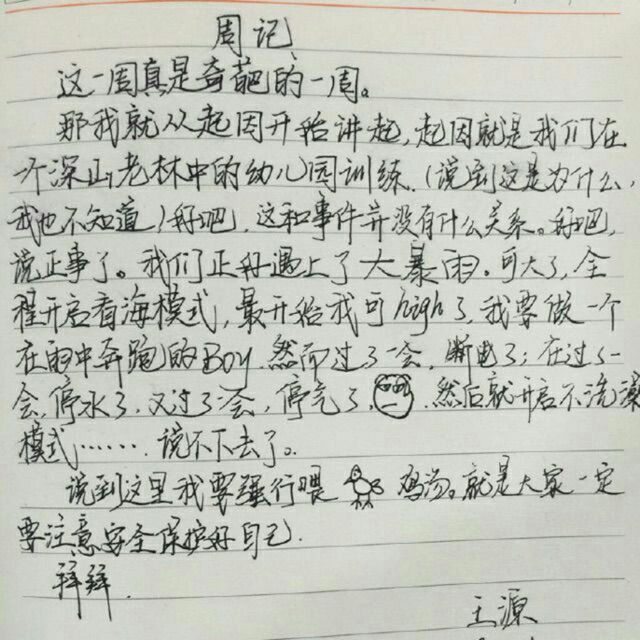 周记
这一周真是奇葩的一周。
那我就从起因开始讲起,起因就是我们在
一个深山老林中的幼儿园训练.(说到这是为什么,
我也不知道)好吧,这和事件并没有什么关系。好吧,
说正事了。我们正好遇上了大暴雨。可大了,全
程开启看海模式,最开始我可high了,我要做一个
在雨中奔跑的BOY.然而过了一会,断电了;在过了一
会,停水了,又过了一会,停气了,然后就开启不洗澡
模式……说不下去了。
说到这里我要强行喂鸡汤。就是大家一定
要注意安全保护好自己.
拜拜.
王源